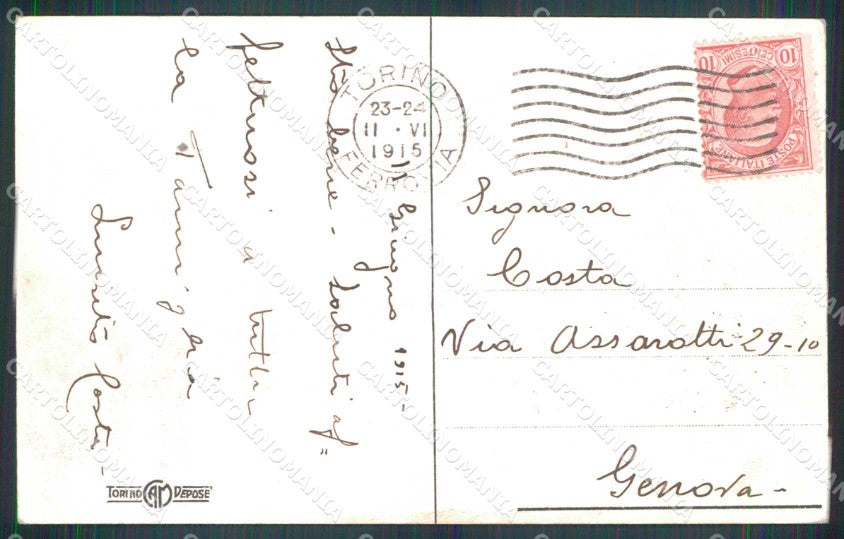 11 Giugno 1915 -
Sto bene - Saluti af=
fettuosi a tutta
la Famiglia
Costa -
TORINO
23-24
11 · VI
1915
FERROVIA
10 10
CENTESIMI
POSTE ITALIANE
Signora
Costa
Via Assarotti 29-10
Genova -
TORINO CAM DEPOSE'
CARTOLINOMANIA